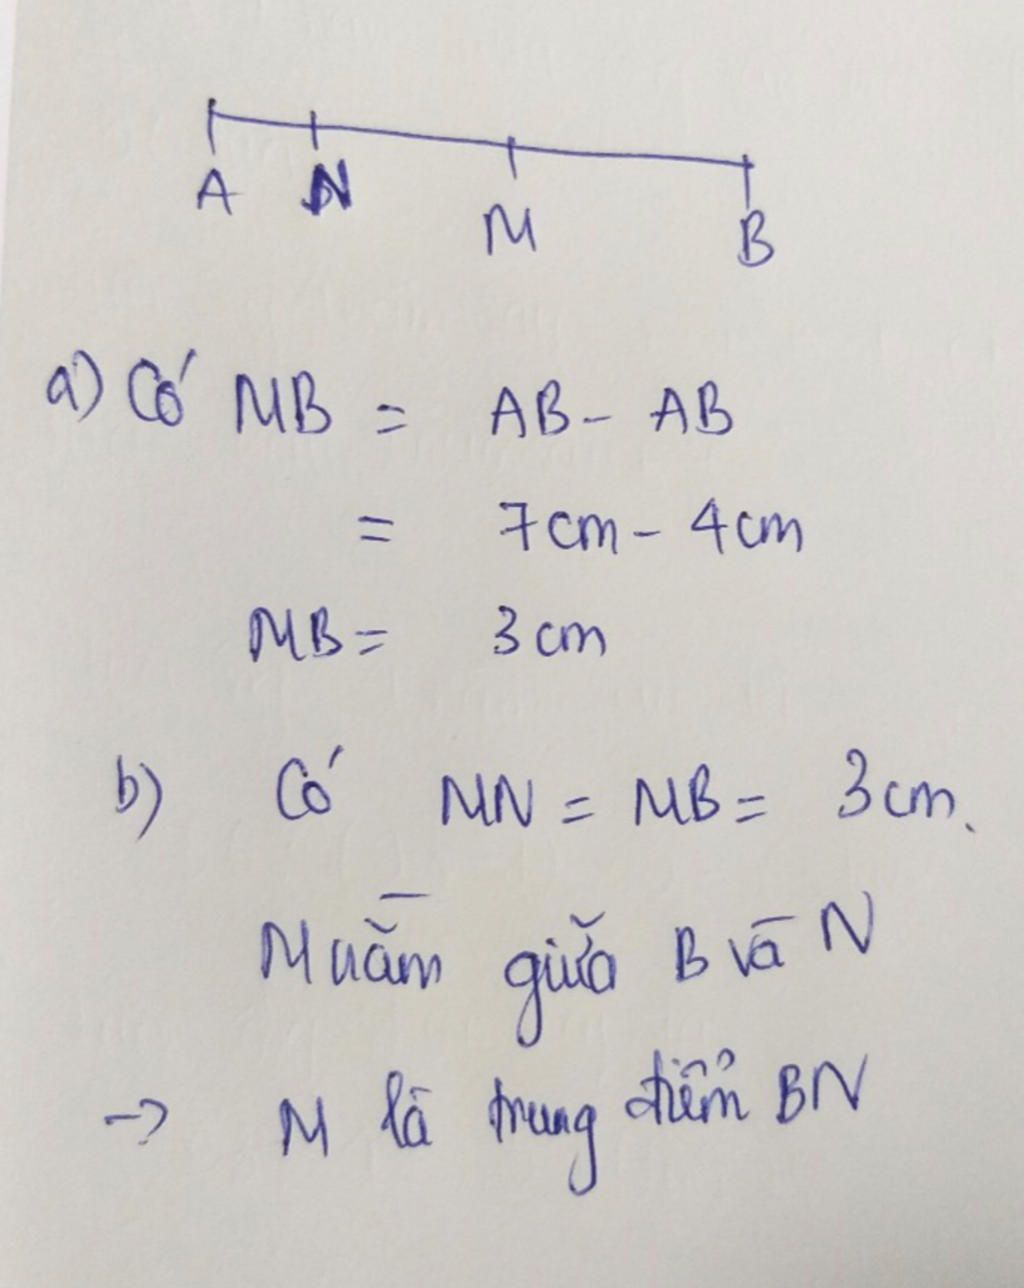 A N M B
a) Có MB = AB - AB
= 7cm - 4cm
MB = 3cm
b) Có MN = MB = 3cm.
M nằm giữa B và N
-> M là trung điểm BN